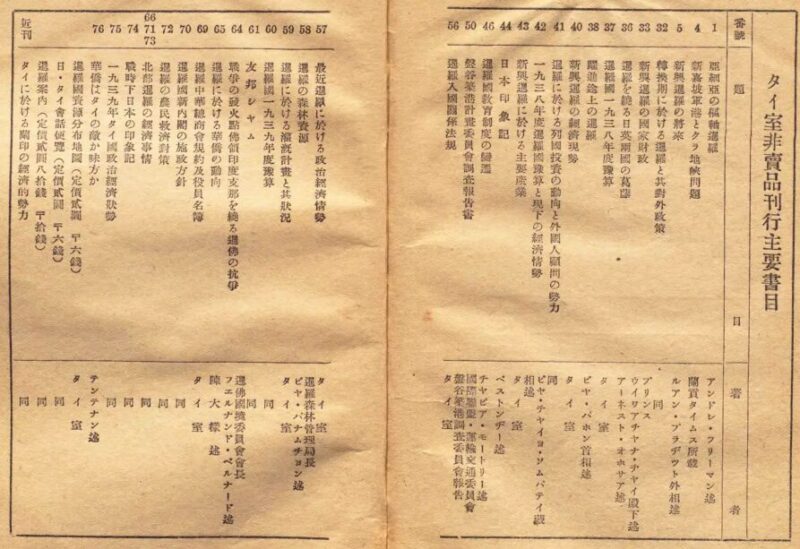 タイ室非賣品刊行主要書目
番號 題 目 著 者
1 亞細亞の樞軸暹羅 アンドレ・フリーマン述
4 新嘉坡軍港とクラ地峽問題 蘭貢タイムス所載
5 新興暹羅の將來 ルアン・プラデウト外相述
32 轉換期に於ける暹羅と其對外政策 同
33 新興暹羅の國家財政 プリンス ウイワアチヤナ・チヤイ殿下述
36 暹羅を繞る日英兩國の葛藤 アーネスト・オホサア述
37 暹羅國一九三八年度豫算 タイ室
38 躍進途上の暹羅 ピヤ・パホン首相述
40 新興暹羅の經濟現勢 タイ室
41 暹羅に於ける列國投資の動向と外國人顧問の勢力 同
42 一九三八年度暹羅國豫算と現下の經濟情勢 ピヤ・チヤイヨ・ソムバテイ藏相述
43 新興暹羅に於ける主要産業 タイ室
44 日本印象記 ベストンヂー述
46 暹羅國教育制度の變遷 チヤピア・モートリー述
50 盤谷築港計畫委員會調査報告書 國際聯盟・運輸交通委員會 盤谷築港調査委員會報告
56 暹羅入國關係法規 タイ室
57 最近暹羅に於ける政治經濟情勢 タイ室
58 暹羅の森林資源 暹羅森林管理局長 ピヤ・パナムチヨン述
59 暹羅に於ける灌漑計畫と其狀況 タイ室
60 暹羅國一九三九年度豫算 同
61 友邦シャム 同
64 戰爭の發火點佛領印度支那を繞る暹佛の抗爭 暹佛國境委員會會長 フエルナンド・ベルナード述
65 暹羅に於ける華僑の動向 陳大樑述
69 暹羅中華總商會規約及役員名簿 タイ室
70 暹羅國新內閣の施政方針 同
72 暹羅の農民救濟對策 同
66 71 73 北部暹羅の經濟事情 同
74 戰時下日本の印象記 同
75 一九三九年タイ國政治經濟狀勢 同
76 華僑はタイの敵か味方か テンテナン述
暹羅國資源分布地圖（定價貳圓 〒六錢） タイ室
日・タイ會話便覽（定價貳圓 〒六錢） 同
暹羅案內（定價貳圓八拾錢 〒十錢） 同
近刊 タイに於ける蘭印の經濟的勢力 同